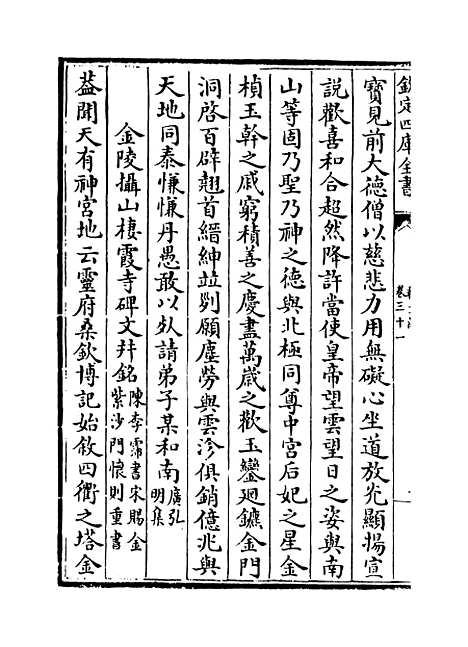 欽定四庫全書
卷三十一
寳見前大德僧以慈悲力用無礙心坐道放光顯揚宣
說歡喜和合超然降許當使皇帝望雲望日之姿與南
山等固乃聖乃神之德與北極同尊中宮后妃之星金
楨玉幹之戚窮積善之慶盡萬嵗之歡玉鑾廻鑣金門
洞啓百辟翹首縉紳竝列願塵勞與雲沴俱銷億兆與
天地同泰慊慊丹愚敢以死請弟子某和南廣弘明集
金陵攝山棲霞寺碑文幷銘陳李霈書宋賜金紫沙門懷則重書
葢聞天有神宮地云靈府桑欽博記始敘四衢之塔金